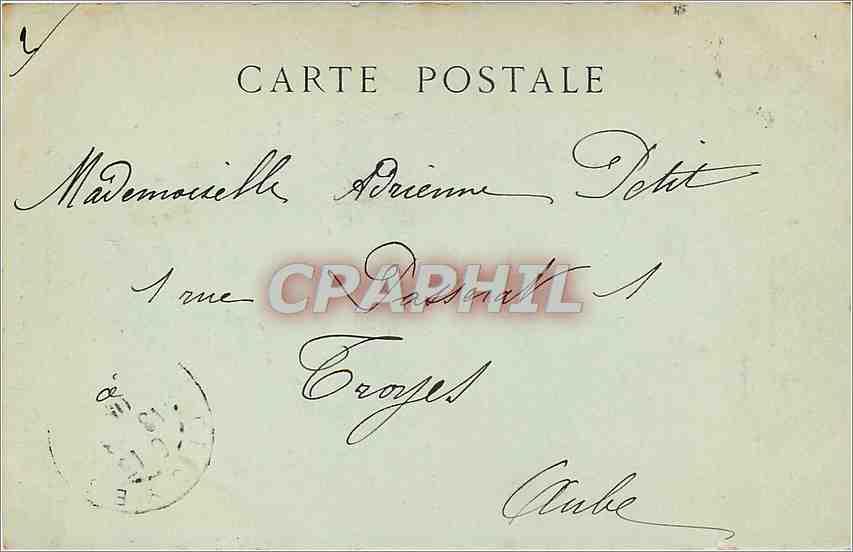 CARTE POSTALE
Mademoiselle Adrienne Petit
1 rue Passerat 1
CPAPHIL
Troyes
à
Aube